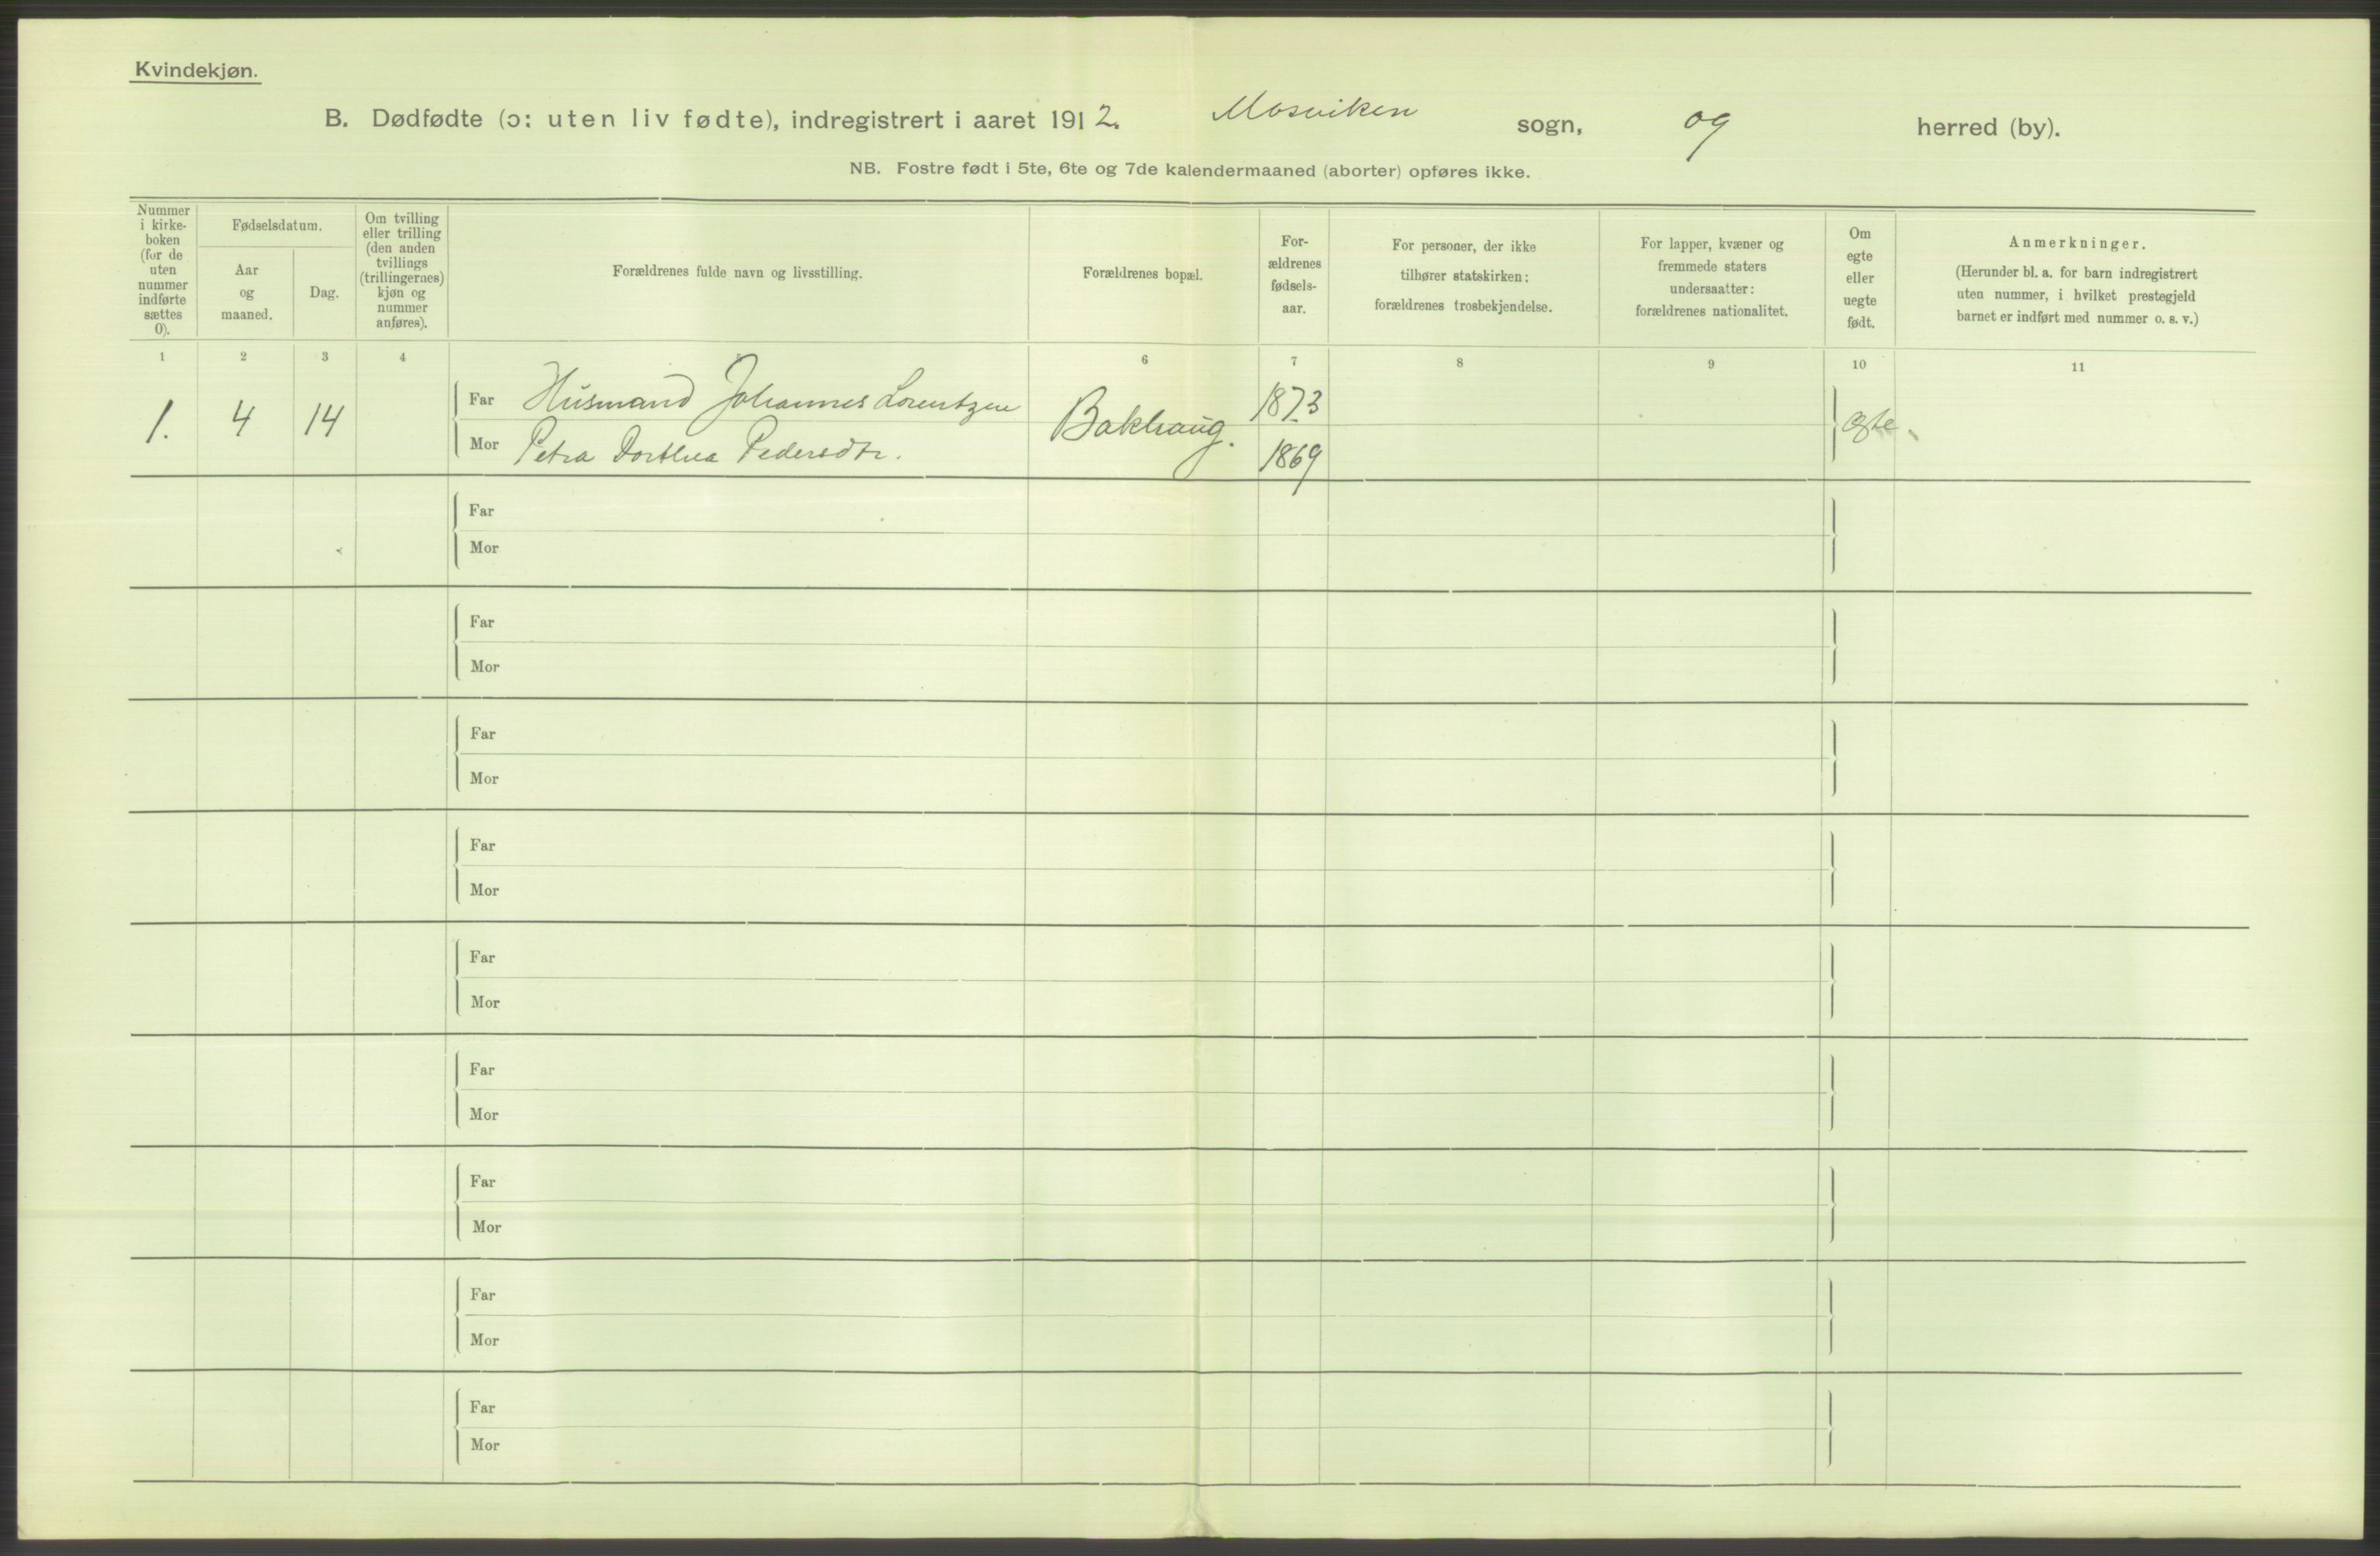 Kvindekjøn.
B. Dødfødte (ɔ: uten liv fødte), indregistrert i aaret 1912. Mosviken sogn, og herred (by).
NB. Fostre født i 5te, 6te og 7de kalendermaaned (aborter) opføres ikke.
Nummer
i kirke-
boken
(for de
uten
nummer
indførte
sættes
0).
Fødselsdatum.
Aar
og
maaned.
Dag.
Om tvilling
eller trilling
(den anden
tvillings
(trillingernes)
kjøn og
nummer
anføres).
Forældrenes fulde navn og livsstilling.
Forældrenes bopæl.
For-
ældrenes
fødsels-
aar.
For personer, der ikke
tilhører statskirken:
forældrenes trosbekjendelse.
For lapper, kvæner og
fremmede staters
undersaatter:
forældrenes nationalitet.
Om
egte
eller
uegte
født.
Anmerkninger.
(Herunder bl. a. for barn indregistrert
uten nummer, i hvilket prestegjeld
barnet er indført med nummer o. s. v.)
1 2 3 4 5 6 7 8 9 10 11
1. 4 14
Far Husmand Johannes Lorentzen
Mor Petra Dorthea Pedersdtr.
Bakhaug.
1873
1869
egte.
Far
Mor
Far
Mor
Far
Mor
Far
Mor
Far
Mor
Far
Mor
Far
Mor
Far
Mor
Far
Mor